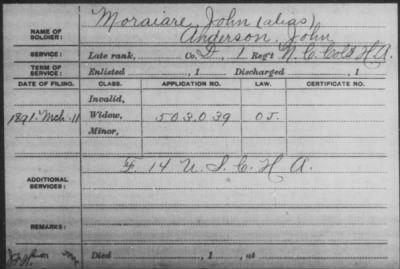 NAME OF SOLDIER: Moraiare, John (alias)
Anderson, John
SERVICE: Late rank, Co. D, 1 Reg't N. C. Cold H A.
TERM OF SERVICE: Enlisted , 1 Discharged , 1
DATE OF FILING. CLASS. APPLICATION NO. LAW. CERTIFICATE NO.
Invalid,
1891. Mch. 11 Widow, 503.039 OJ.
Minor,
ADDITIONAL SERVICES: F. 14 U. S. C. H A.
REMARKS:
Died , 1 , at